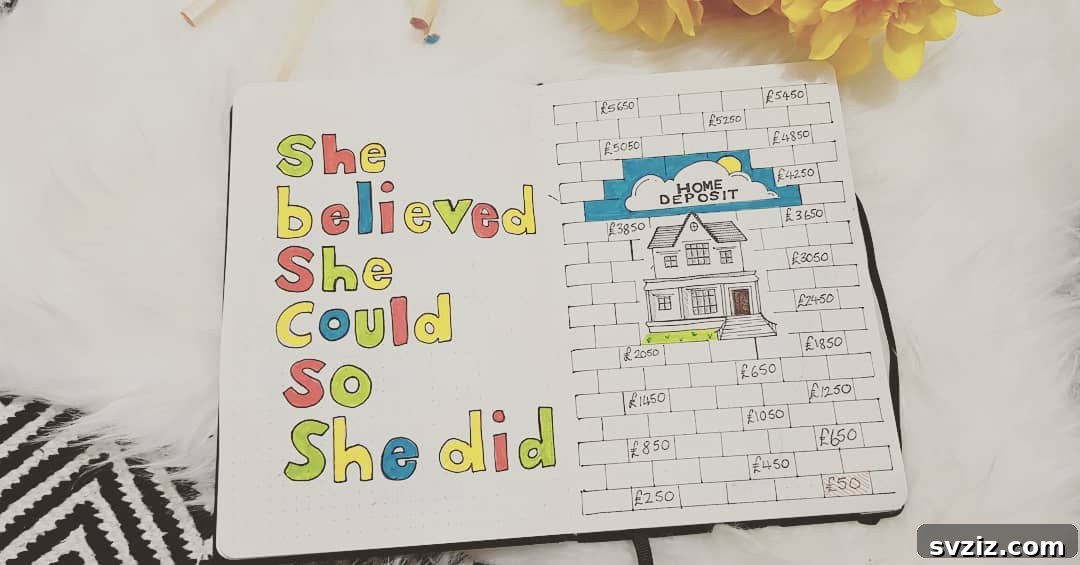 She
believed
She
Could
So
She did
£5650 £5450
£5250
£5050 £4850
£4250
HOME
DEPOSIT
£3650
£3850
£3050
£2450
£1850
£2050
£650
£1250
£1450
£1050
£650
£850
£450
£50
£250
svziz.com